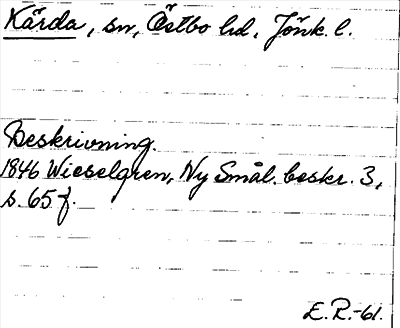 Kärda, sn, Östbo hd, Jönk. l.
Beskrivning.
1846 Wieselgren, Ny Smål. beskr. 3,
s. 65 f.
E.R.-61.